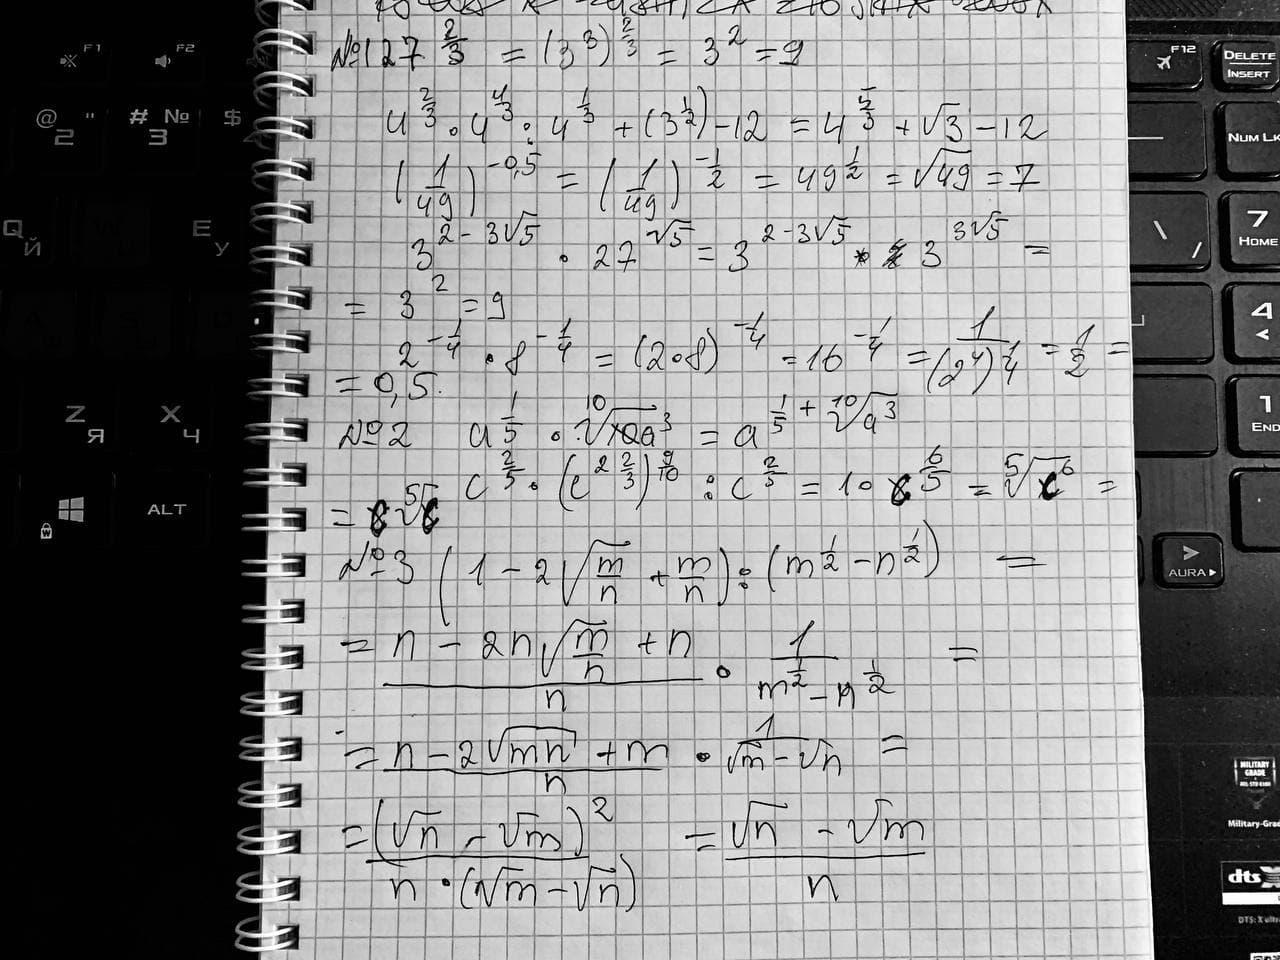 №1 27^(2/3) = (3^3)^(2/3) = 3^2 = 9
4^(2/3) · 4^(4/3) : 4^(1/3) + (3^(1/2)) - 12 = 4^(5/3) + √3 - 12
(1/49)^(-0,5) = (1/49)^(-1/2) = 49^(1/2) = √49 = 7
3^(2-3√5) · 27^(√5) = 3^(2-3√5) · 3^(3√5) =
= 3^2 = 9
2^(-1/4) · 8^(-1/4) = (2·8)^(-1/4) = 16^(-1/4) = 1/(2^4)^(1/4) = 1/2 =
= 0,5.
№2 a^(1/5) · ¹⁰√a^3 = a^(1/5) + ¹⁰√a^3
c^(2/5) · (c^(2 2/3))^(9/10) : c^(2/5) = 10 c^(6/5) = ⁵√c^6 =
= c ⁵√c
№3 (1 - 2√(m/n) + m/n) : (m^(1/2) - n^(1/2)) =
= (n - 2n√(m/n) + n)/n · 1/(m^(1/2) - n^(1/2)) =
= (n - 2√(mn) + m)/n · 1/(√m - √n) =
= (√n - √m)^2/(n · (√m - √n)) = (√n - √m)/n
F1
F2
@ 2 "
# № 3
$
Q Й
E У
Z Я
X Ч
ALT
F12
DELETE
INSERT
NUM LK
7
HOME
4
<
1
END
>
AURA
MILITARY
GRADE
Military-Gra
dts X